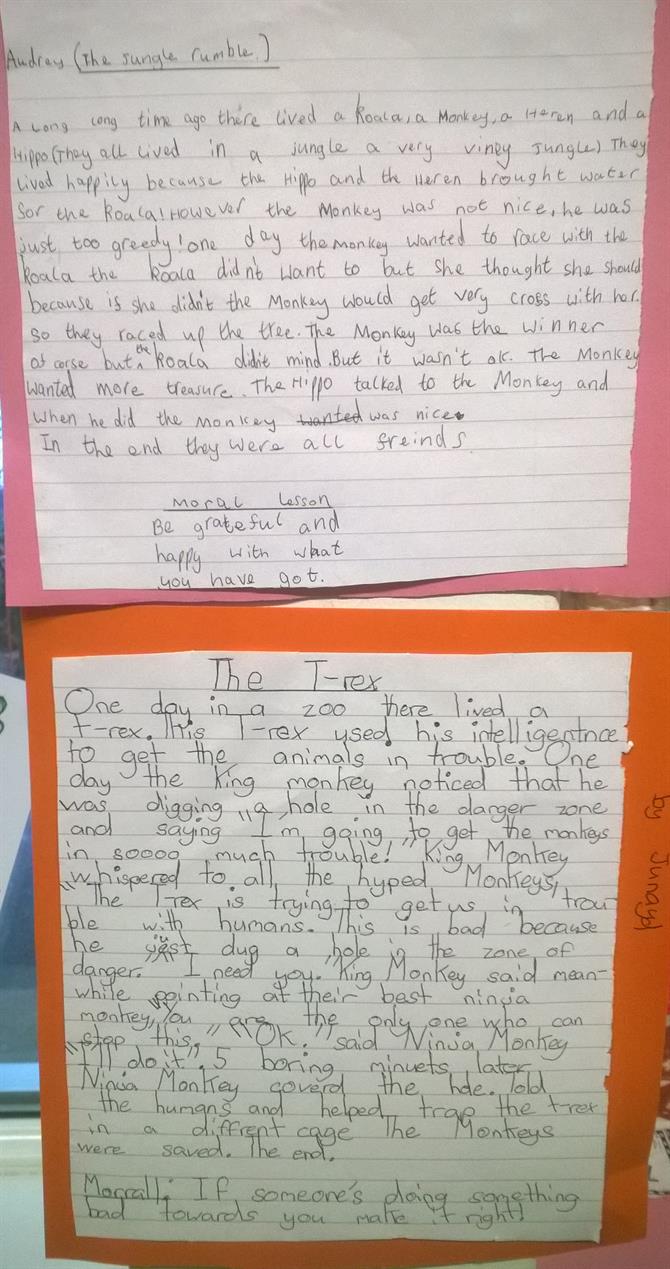 Audrey (The Jungle rumble.)
A Long Long time ago there lived a Koala, a Monkey, a Heren and a
Hippo (They all Lived in a jungle a very viney Jungle) They
Lived happily because the Hippo and the Heren brought water
for the Koala! However the Monkey was not nice, he was
just too greedy! one day the monkey wanted to race with the
koala the koala didn't want to but she thought she should
because if she didn't the Monkey would get very cross with her.
so they raced up the tree. The Monkey was the winner
of corse but the Koala didn't mind. But it wasn't ok. The Monkey
wanted more treasure. The Hippo talked to the Monkey and
when he did the monkey wanted was nice.
In the end they were all freinds
Moral Lesson
Be grateful and
happy with what
you have got.
The T-rex
One day in a zoo there lived a
t-rex. This T-rex ysed his intelligentnce
to get the animals in trouble. One
day the King monkey noticed that he
was digging a hole in the danger zone
and saying "I'm going to get the monkeys
in soooo much trouble!" King Monkey
whispered to all the hyped Monkeys,
"The T-rex is trying to get us in trou
ble with humans. This is bad because
he just dug a hole in the zone of
danger. I need you. King Monkey said mean-
while pointing at their best ninja
monkey, "You are the only one who can
stop this." "OK." said Ninja Monkey
"I'll do it". 5 boring minuets later
Ninja Monkey coverd the hole. Told
the humans and helped trap the t-rex
in a diffrent cage The Monkeys
were saved. The end.
Morrall: If someone's doing something
bad towards you make it right!
by Junayd